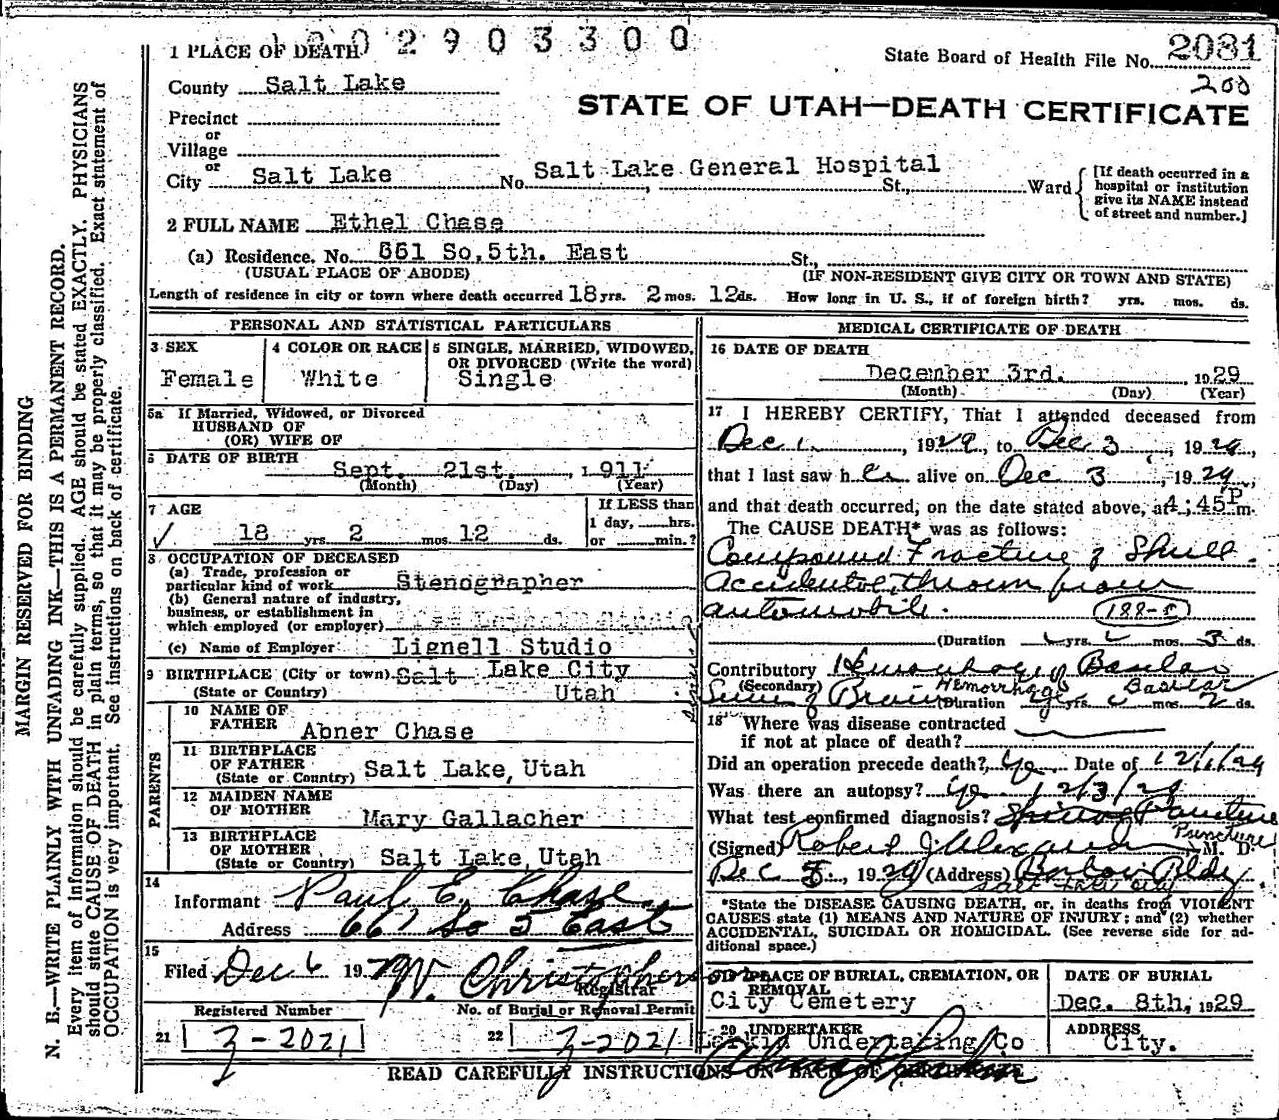 2 9 0 3 3 0 0
1 PLACE OF DEATH
State Board of Health File No. 2081
200
County Salt Lake
STATE OF UTAH—DEATH CERTIFICATE
Precinct
or
Village
or
City Salt Lake No. Salt Lake General Hospital St., Ward
[If death occurred in a hospital or institution give its NAME instead of street and number.]
2 FULL NAME Ethel Chase
(a) Residence. No. 661 So. 5th. East St.,
(USUAL PLACE OF ABODE) (IF NON-RESIDENT GIVE CITY OR TOWN AND STATE)
Length of residence in city or town where death occurred 18 yrs. 2 mos. 12 ds. How long in U. S., if of foreign birth? yrs. mos. ds.
PERSONAL AND STATISTICAL PARTICULARS
3 SEX
Female
4 COLOR OR RACE
White
5 SINGLE, MARRIED, WIDOWED, OR DIVORCED (Write the word)
Single
5a If Married, Widowed, or Divorced
HUSBAND OF
(OR) WIFE OF
6 DATE OF BIRTH
Sept. 21st. 1911
(Month) (Day) (Year)
7 AGE
18 yrs 2 mos 12 ds.
If LESS than
1 day, hrs.
or min.?
8 OCCUPATION OF DECEASED
(a) Trade, profession or
particular kind of work Stenographer
(b) General nature of industry,
business, or establishment in
which employed (or employer)
(c) Name of Employer Lignell Studio
9 BIRTHPLACE (City or town) Salt Lake City
(State or Country) Utah
PARENTS
10 NAME OF
FATHER
Abner Chase
11 BIRTHPLACE
OF FATHER
(State or Country) Salt Lake, Utah
12 MAIDEN NAME
OF MOTHER
Mary Gallacher
13 BIRTHPLACE
OF MOTHER
(State or Country) Salt Lake, Utah
14
Informant Paul E. Chase
Address 661 So 5 East
15
Filed Dec 6 1929 W. Christopherson
Registrar
Registered Number No. of Burial or Removal Permit
21 Z-2021 22 Z-2021
MEDICAL CERTIFICATE OF DEATH
16 DATE OF DEATH
December 3rd. 1929
(Month) (Day) (Year)
17 I HEREBY CERTIFY, That I attended deceased from
Dec 1, 1929, to Dec 3, 1929,
that I last saw her alive on Dec 3, 1929,
and that death occurred, on the date stated above, at 4:45 P m.
The CAUSE DEATH* was as follows:
Compound Fracture of Skull.
Accidental, thrown from
automobile. 188-c
(Duration yrs. mos. 3 ds.
Contributory Hemorrhage of Basilar
(Secondary) Hemorrhage Basilar
Brain (Duration yrs. mos. 2 ds.
18 Where was disease contracted
if not at place of death?
Did an operation precede death? Yes Date of 12/1/29
Was there an autopsy? Yes 12/3/29
What test confirmed diagnosis? Spinal Puncture
Puncture
(Signed) Robert J Alexander M. D.
Dec 5, 1929 (Address) Boston Bldg
Salt Lake City
*State the DISEASE CAUSING DEATH, or, in deaths from VIOLENT
CAUSES state (1) MEANS AND NATURE OF INJURY; and (2) whether
ACCIDENTAL, SUICIDAL OR HOMICIDAL. (See reverse side for ad-
ditional space.)
19 PLACE OF BURIAL, CREMATION, OR
REMOVAL
City Cemetery
DATE OF BURIAL
Dec. 8th, 1929
20 UNDERTAKER
Larkin Undertaking Co
ADDRESS
City.
READ CAREFULLY INSTRUCTIONS ON BACK OF CERTIFICATE
MARGIN RESERVED FOR BINDING
N. B.—WRITE PLAINLY WITH UNFADING INK—THIS IS A PERMANENT RECORD.
Every item of information should be carefully supplied. AGE should be stated EXACTLY. PHYSICIANS
should state CAUSE OF DEATH in plain terms, so that it may be properly classified. Exact statement of
OCCUPATION is very important. See instructions on back of certificate.